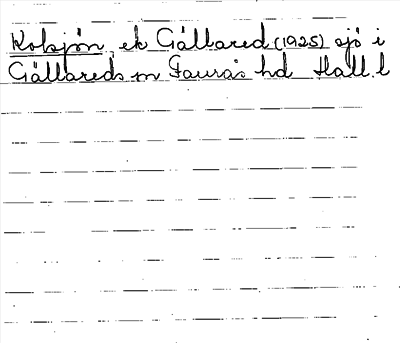 Kolsjön, ek Gällared (1925) sjö i
Gällareds sn Faurås hd Hall. l